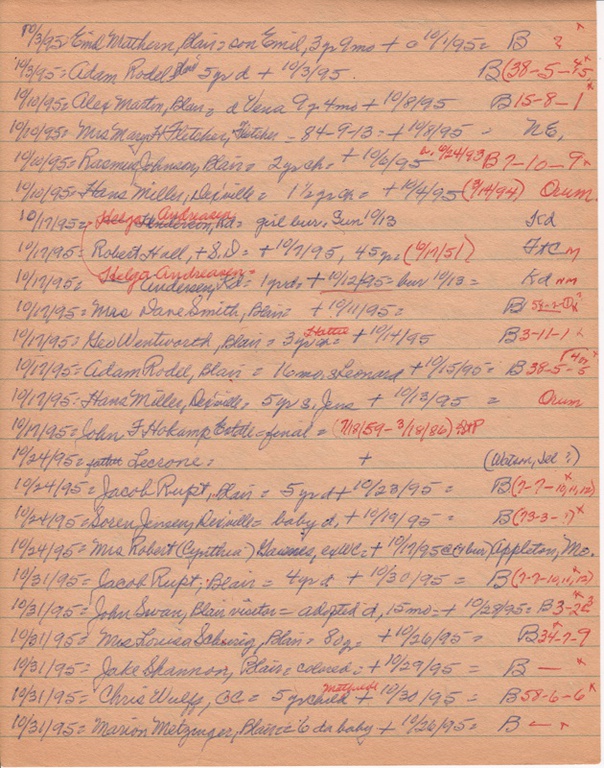 10/3/95= Emil Mathern, Blair= son Emil, 3 yr 9 mo + 10/1/95= B ? x
10/3/95= Adam Rodel 5 yr d + 10/3/95. B(38-5-
10/10/95= Alex Martin, Blair= d Vena 9 y 4 mo + 10/8/95 B 15-8-1 x
10/10/95= Mrs Mary H Fletcher, Fletcher - 84-9-13= + 10/8/95 = NE,
10/10/95= Rasmus Johnson, Blair= 2 yr ch= + 10/6/95 10/24/93 B 7-10-9 x
10/10/95= Hans Miller, Dexville= 1½ yr ch= + 10/4/95 (3/14/94) Orum.
10/17/95= Helga Andreasen Anderson, Kd= girl bur. Sun 10/13 Kd
10/17/95= Robert Hall, + S.D= + 10/7/95, 45 yr= (10/17/51) FtC M
10/17/95= Helga Andreasen= Andersen, Kd= 1 yr d= + 10/12/95= bur 10/13= Kd NM
10/17/95= Mrs Dave Smith, Blair= + 10/11/95= B
10/17/95= Geo Wentworth, Blair= 3 yr ch= Hattie + 10/14/95 B 3-11-1 x
10/17/95= Adam Rodel, Blair= 16 mo. s Leonard + 10/15/95= B 38-5-5
10/17/95= Hans Miller, Dexville= 5 yr s, Jens + 10/13/95 = Orum
10/17/95= John F Hokamp Estate= final= (7/18/59-3/18/86) StP
10/24/95= Lecrone= + (Watson, Sel ?)
10/24/95= Jacob Rupt, Blair= 5 yr d + 10/23/95= B(7-7-10,11,12) x
10/24/95= Soren Jensen, Dexville= baby d, + 10/19/95 = B(73-3-1) x
10/24/95= Mrs Robert (Cynthia) Gaines, ex WC= + 10/17/95 @ (& bur) Appleton, Mo.
10/31/95= Jacob Rupt, Blair= 4 yr d + 10/30/95 = B(7-7-10,11,12) x
10/31/95= John Swan, Blair visitor= adopted d, 15 mo= + 10/28/95= B 3-2
10/31/95= Mrs Louisa Scheirig, Blair= 80 y= + 10/26/95= B 34-7-9 x
10/31/95= Jake Shannon, Blair= colored= + 10/29/95 = B — x
10/31/95= Chris Wulff, GC= 5 yr child Mathilde + 10/30/95 = B 58-6-6 x
10/31/95= Marion Metzinger, Blair= 6 da baby + 10/26/95= B — x